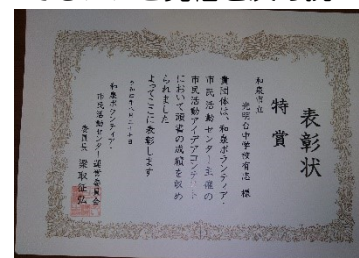 表彰状
特賞
和泉市立
光明台中学校有志 様
貴団体は、和泉ボランティア・
市民活動センター主催の
市民活動アイデアコンテスト
において頭書の成績を収め
られました
よってここに表彰します
和泉ボランティア・
市民活動センター 運営委員会
委員長